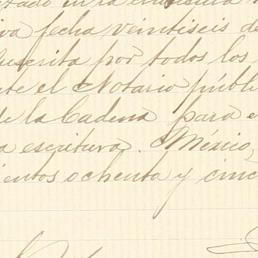 tado en la
va fecha veintiseis de
suscrita por todos los
te el Notario públi
de la Cadena para e
a escritura. México,
ientos ochenta y cinc